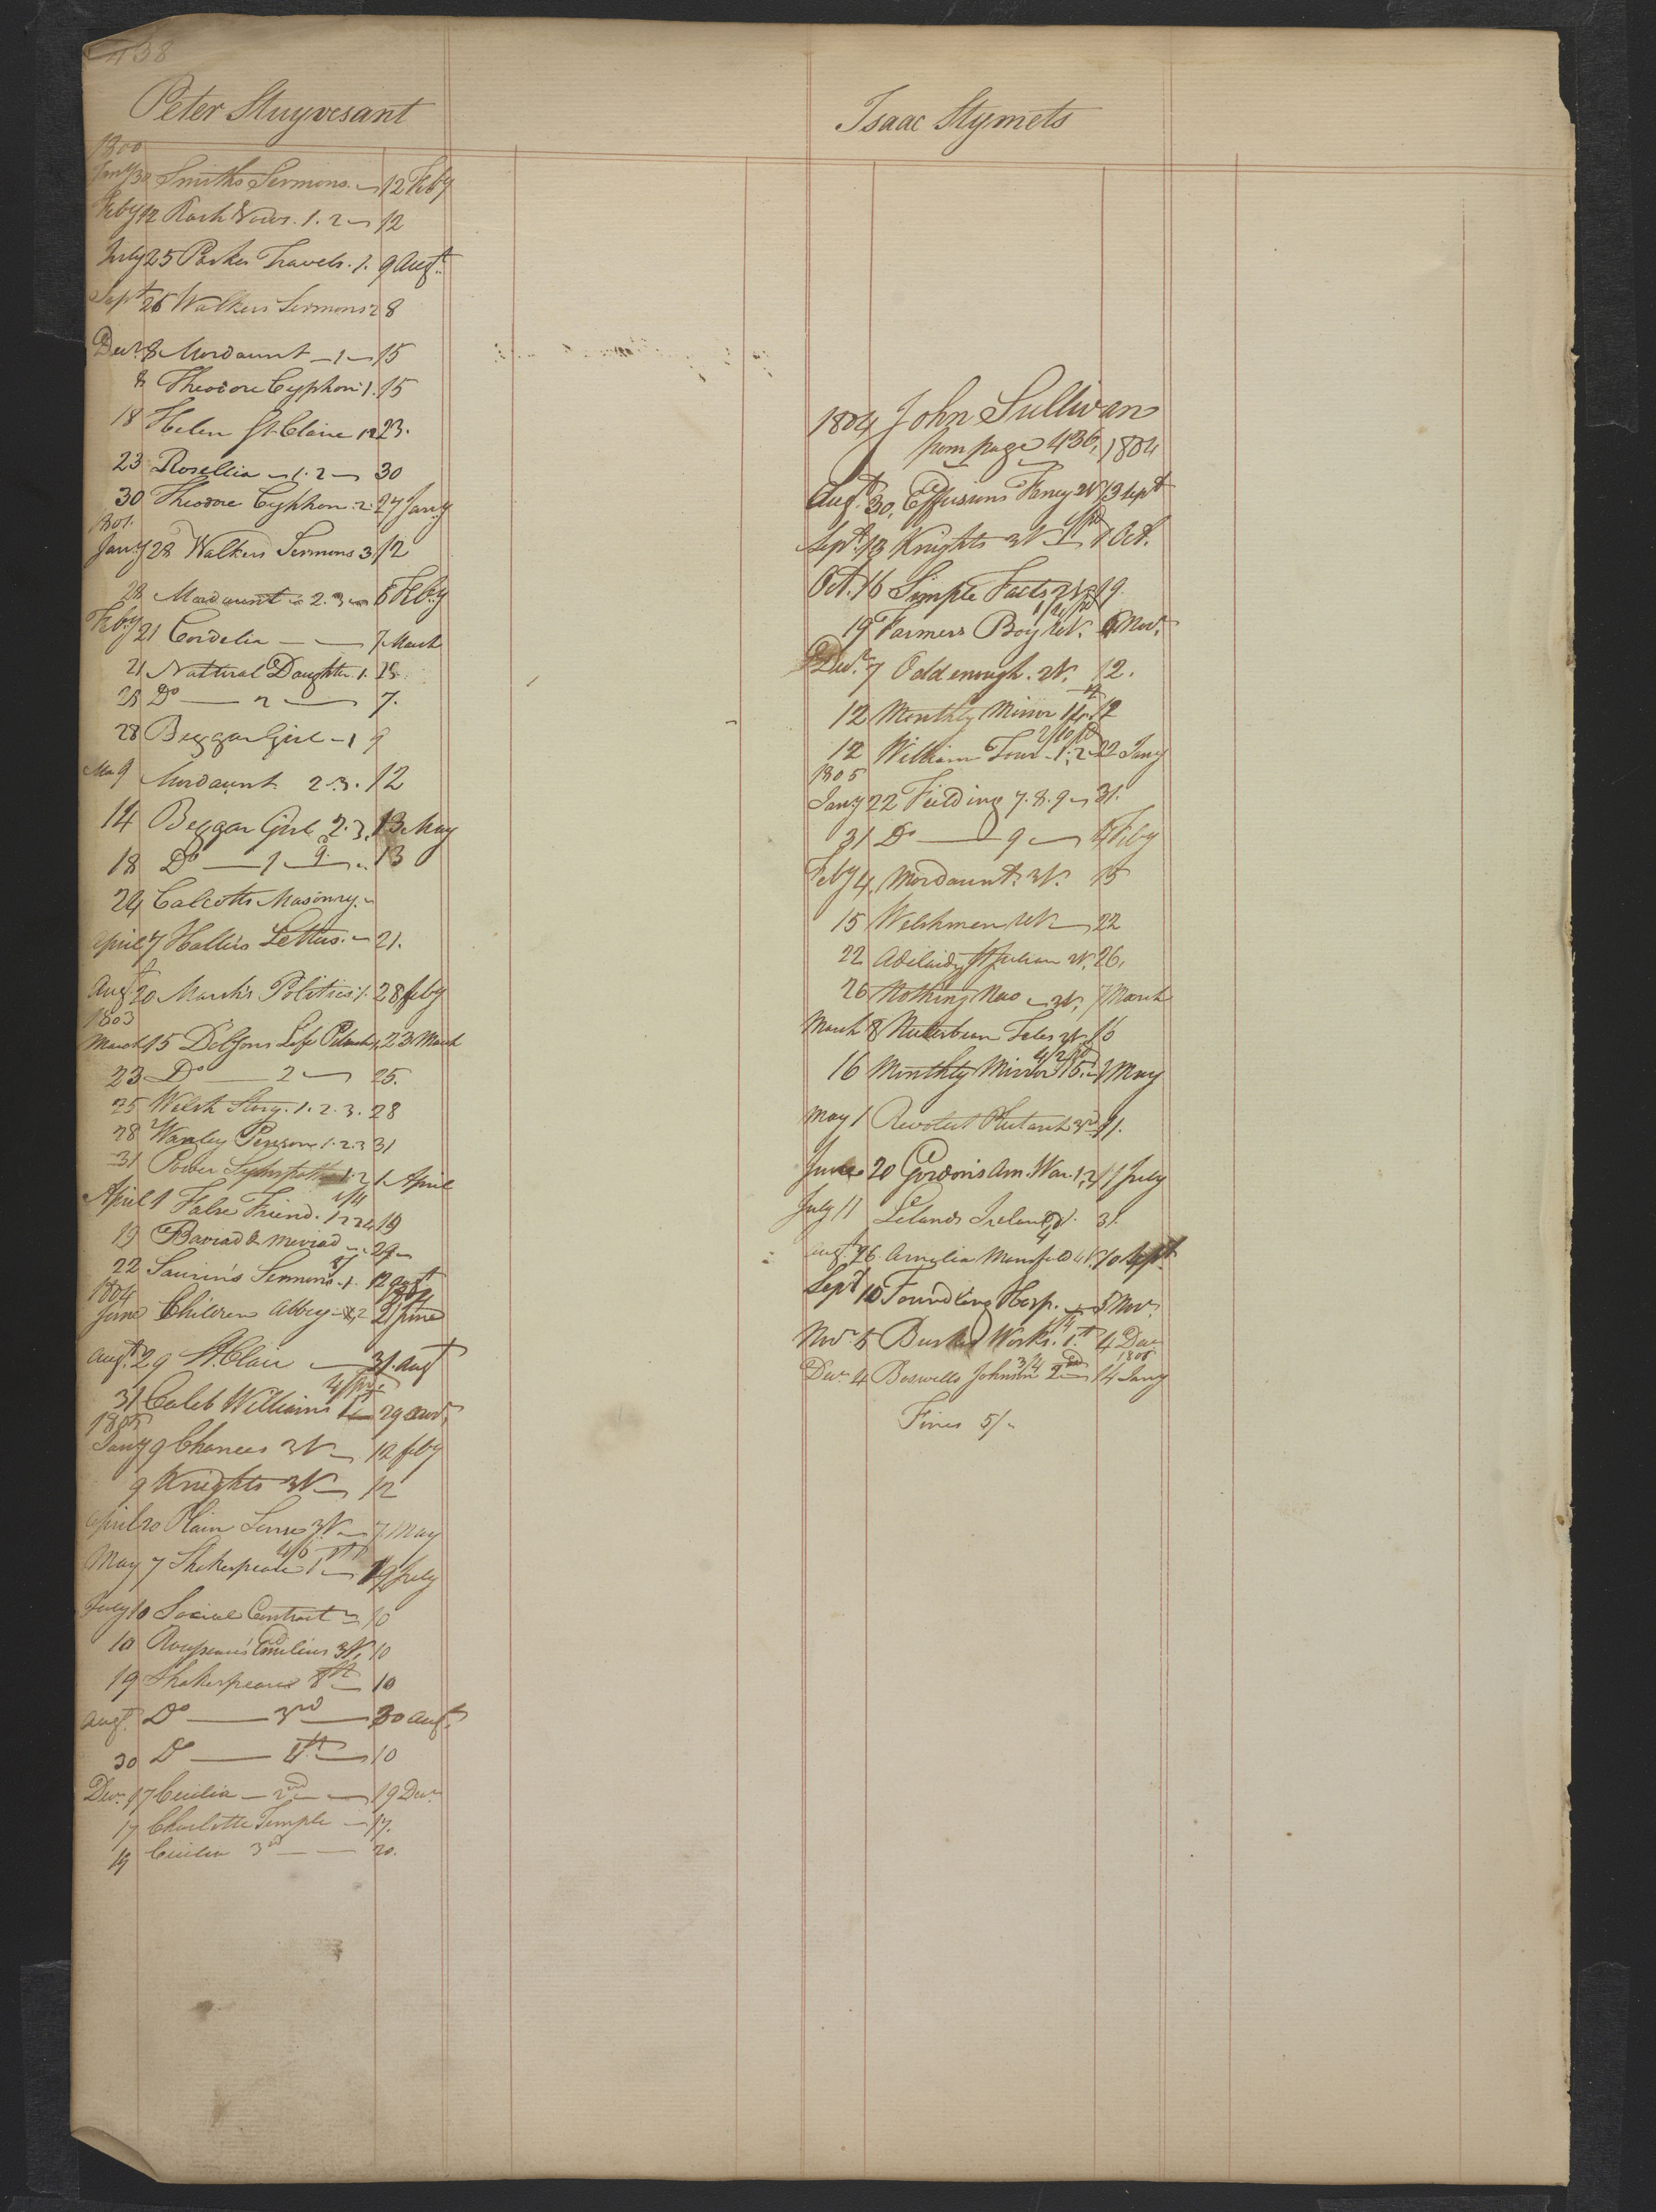 438
Peter Stuyvesant
1800
Jany 30 Smiths Sermons. 12 Feby
Feby 12 Rash Vows. 1. 2 12
July 25 Parkes Travels. 1. 9 Augt
Sept 26 Walkers Sermons 2 8
Decr 8 Mordaunt 1 15
8 Theodore Cyphon 1. 15
18 Helen St Claire 1 2 23.
23 Rosellia 1. 2 30
30 Theodore Cyphon. 2. 27 Jany
1801.
Jany 28 Walkers Sermons 3 12
28 Mordaunt 2. 3 6 Feby
Feby 21 Cordelia 7 March
21 Natural Daughter. 1. 28
28 Do 2 7.
28 Beggar Girl 1 9
Mar 9 Mordaunt 2. 3. 12
14 Beggar Girl 2. 3. 13 May
18 Do 1 13
24 Calcotts Masonry.
April 7 Hollis Letters. 21.
Augt 20 Marsh's Politics 1. 28 feby
1803
March 15 Dobsons Life Petrarch 1 23 March
23 Do 2 25.
25 Welsh Story. 1. 2. 3. 28
28 Wanley Penson 1. 2. 3 31
31 Power Sympathy 1. 2 1 April
April 1 False Friend. 1 2 3 4 19
19 Baviad & Meviad 29
22 Saurin's Sermons 1. 12 Augt
1804
June Children Abbey 1, 2 21 June
Augt 29 St. Clair 31. Augt
31 Caleb Williams 1st 29
1805
Jany 9 Chances 3V 12 feby
9 Knights 3V 12
April 20 Plain Sense 3V 7 May
May 7 Shakespeare 1 19 July
July 10 Social Contract 10
10 Rousseau's Emilius 3V. 10
19 Shakespeare 8th 10
Augt Do 3rd 30 Augt
30 Do 10
Decr 17 Cecilia 2nd 19 Decr
17 Charlotte Temple 17.
19 Cecilia 3rd 20.
Isaac Stymets
1804 John Sullivan
from page 436, 1804
Augt 30, Effusions Fancy 2V 13 Sept
Sept 13 Knights 3V 1 Oct.
Oct. 16 Simple Facts 2V 19.
19 Farmers Boy 6 Nov.
Decr 7 Odd enough. 2V. 12.
12 Monthly Mirror 12
12 William Tour 1, 2 22 Jany
1805
Jany 22 Feilding 7. 8. 9 31.
31 Do 9 4 Feby
Feby 4, Mordaunt. 3V. 15
15 Welshmen 4V 22
22 Adelaide St Julian 2V. 26,
26 Nothing New 3V. 7 March
March 8 Canterbury Tales 16
16 Monthly Mirror 15. 1 May
May 1 Revolut Plutarch 3rd 11.
June 20 Gordon's Am. War. 1, 2 11 July
July 11 Lelands Ireland 31
Augt 26 Amelia Mansfield 4V 10 Sept
Sept 10 Foundling Hosp. 5 Nov.
Nov. 5 Burke Works. 1st 4 Decr
Decr 4 Boswells Johnson 2nd 1806
14 Jany
Fines 5/